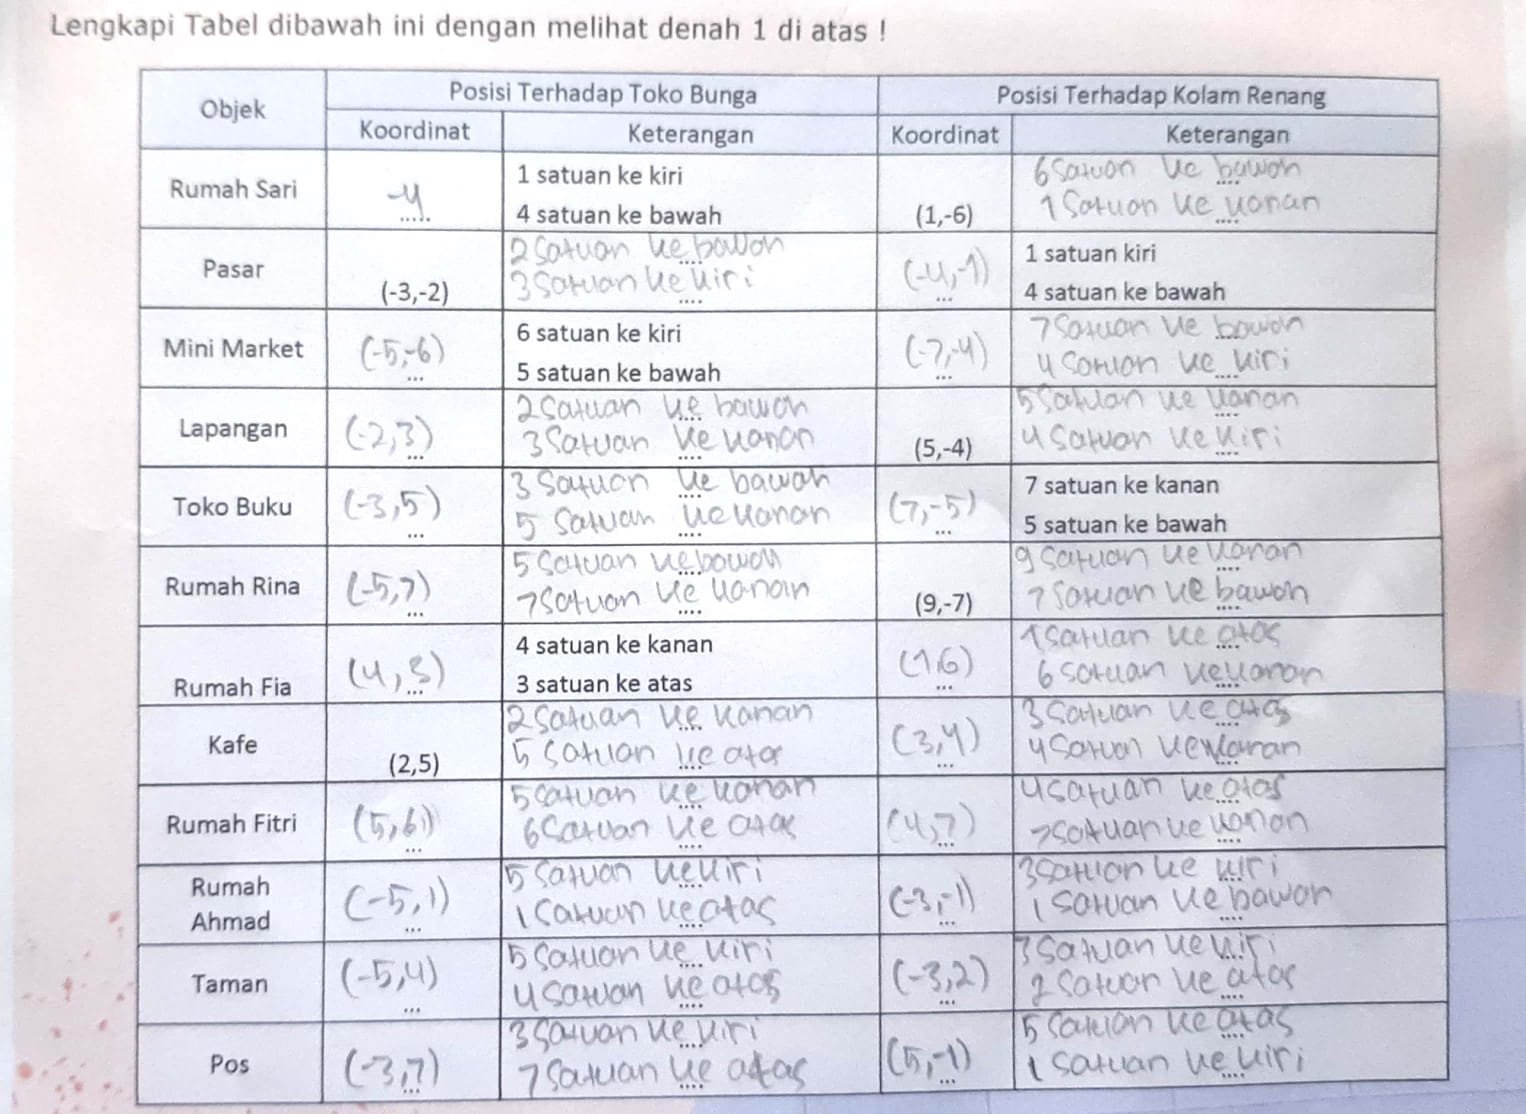 Lengkapi Tabel dibawah ini dengan melihat denah 1 di atas !
Objek
Posisi Terhadap Toko Bunga
Posisi Terhadap Kolam Renang
Koordinat
Keterangan
Koordinat
Keterangan
Rumah Sari
-4
.....
1 satuan ke kiri
4 satuan ke bawah
(1,-6)
6 Satuan ke bawah
1 Satuan ke kanan
Pasar
(-3,-2)
2 Satuan ke bawah
3 Satuan ke kiri
(-4,-1)
...
1 satuan kiri
4 satuan ke bawah
Mini Market
(-5,-6)
...
6 satuan ke kiri
5 satuan ke bawah
(-7,-4)
...
7 Satuan ke bawah
4 Satuan ke kiri
Lapangan
(-2,3)
...
2 Satuan ke bawah
3 Satuan ke kanan
(5,-4)
5 Satuan ke kanan
4 Satuan ke kiri
Toko Buku
(-3,5)
...
3 Satuan ke bawah
5 Satuan ke kanan
(7,-5)
...
7 satuan ke kanan
5 satuan ke bawah
Rumah Rina
(-5,7)
...
5 Satuan ke bawah
7 Satuan ke kanan
(9,-7)
9 Satuan ke kanan
7 Satuan ke bawah
Rumah Fia
(4,3)
...
4 satuan ke kanan
3 satuan ke atas
(1,6)
...
1 Satuan ke atas
6 Satuan ke kanan
Kafe
(2,5)
2 Satuan ke kanan
5 Satuan ke atas
(3,4)
...
3 Satuan ke atas
4 Satuan ke kanan
Rumah Fitri
(5,6)
...
5 Satuan ke kanan
6 Satuan ke atas
(4,7)
...
4 Satuan ke atas
7 Satuan ke kanan
Rumah
Ahmad
(-5,1)
...
5 Satuan ke kiri
1 Satuan ke atas
(-3,-1)
...
3 Satuan ke kiri
1 Satuan ke bawah
Taman
(-5,4)
...
5 Satuan ke kiri
4 Satuan ke atas
(-3,2)
...
3 Satuan ke kiri
2 Satuan ke atas
Pos
(-3,7)
...
3 Satuan ke kiri
7 Satuan ke atas
(5,-1)
...
5 Satuan ke atas
1 Satuan ke kiri